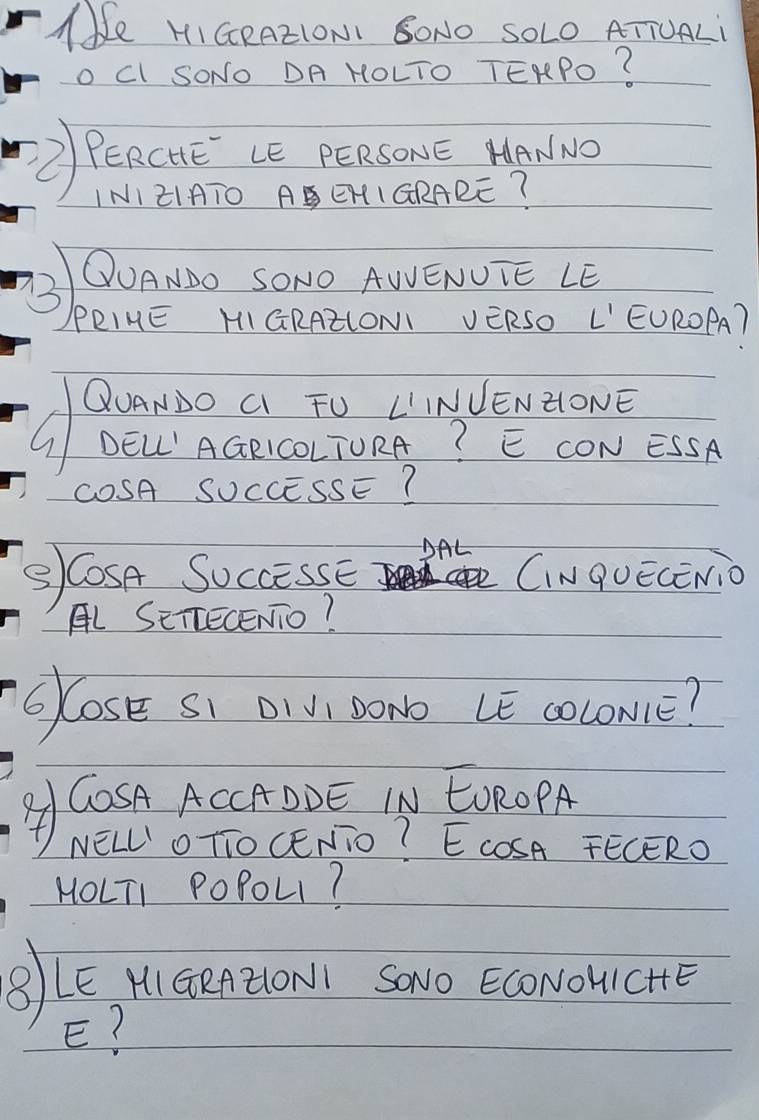 1) Le MIGRAZIONI SONO SOLO ATTUALI
O CI SONO DA MOLTO TEMPO?
2) PERCHE' LE PERSONE HANNO
INIZIATO AD EMIGRARE?
3) QUANDO SONO AVVENUTE LE
PRIME MIGRAZIONI VERSO L'EUROPA?
QUANDO CI FU L'INVENZIONE
4) DELL'AGRICOLTURA? E CON ESSA
COSA SUCCESSE?
5) COSA SUCCESSE DAL CINQUECENTO
AL SETTECENTO?
6) COSE SI DIVIDONO LE COLONIE?
7) COSA ACCADDE IN EUROPA
NELL'OTTOCENTO? E COSA FECERO
MOLTI POPOLI?
8) LE MIGRAZIONI SONO ECONOMICHE
E?